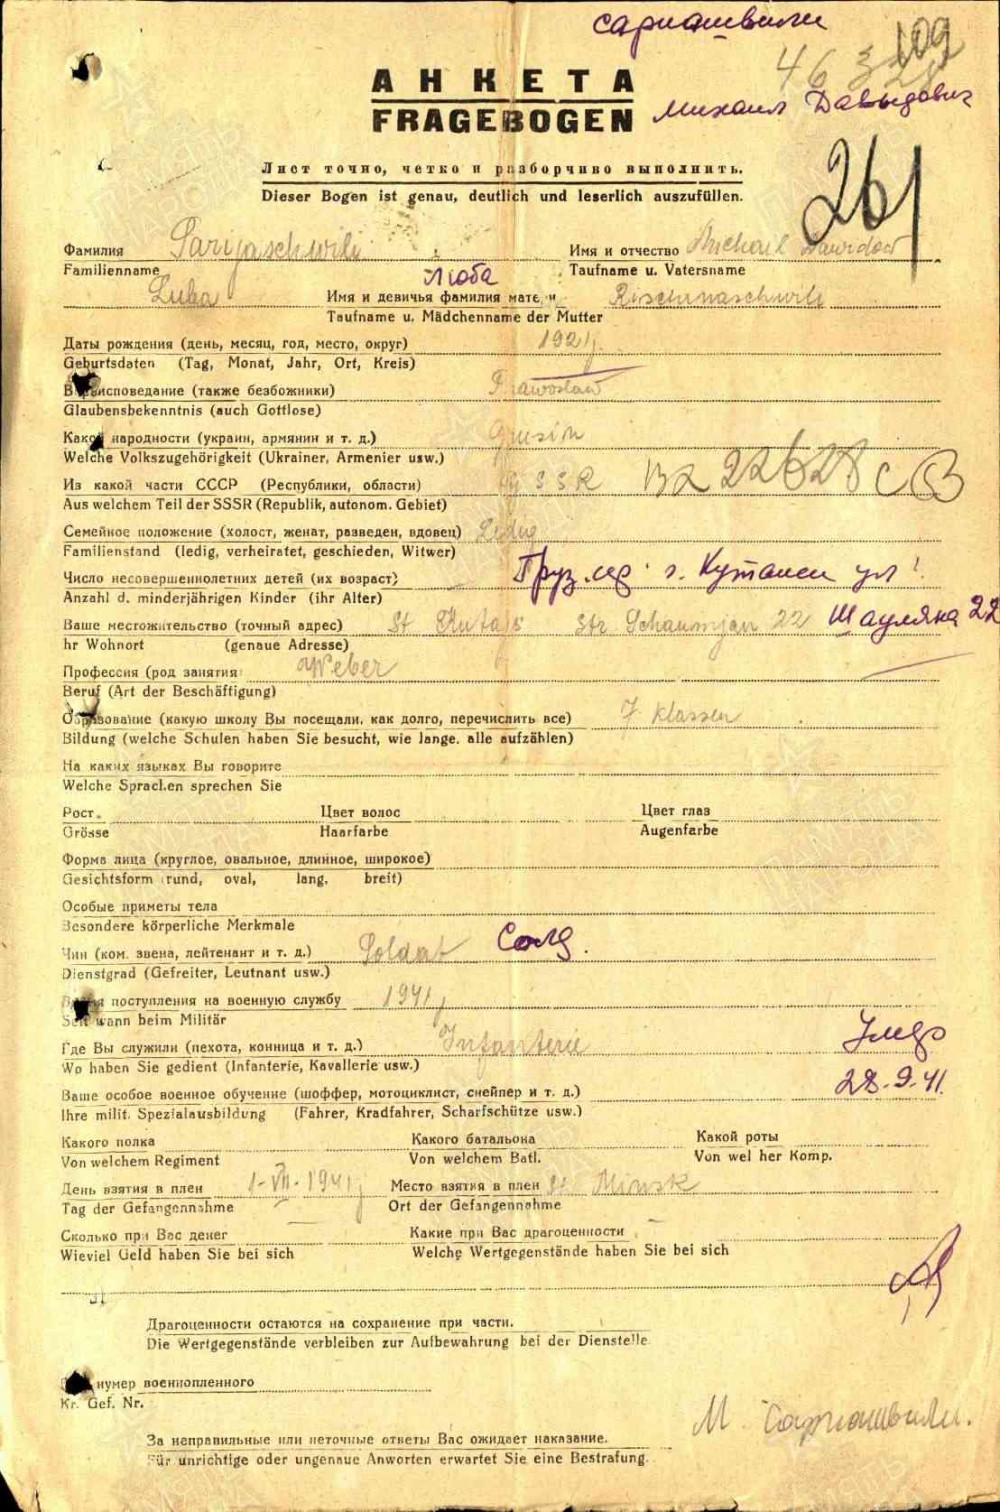 сариашвили
46 3 109
28
АНКЕТА
FRAGEBOGEN
Михаил Давыдович
261
Лист точно, четко и разборчиво выполнить.
Dieser Bogen ist genau, deutlich und leserlich auszufüllen.
Фамилия Sarijaschwili Имя и отчество Michail Dawidow
Familienname Люба Taufname u. Vatersname
Luba Имя и девичья фамилия матери Rischinaschwili
Taufname u. Mädchenname der Mutter
Даты рождения (день, месяц, год, место, округ) 1921j.
Geburtsdaten (Tag, Monat, Jahr, Ort, Kreis)
Вероисповедание (также безбожники) Prawoslaw
Glaubensbekenntnis (auch Gottlose)
Какой народности (украин, армянин и т. д.) Grusin
Welche Volkszugehörigkeit (Ukrainer, Armenier usw.)
Из какой части СССР (Республики, области) SSR 22628 с
Aus welchem Teil der SSSR (Republik, autonom. Gebiet)
Семейное положение (холост, женат, разведен, вдовец) Ledig
Familienstand (ledig, verheiratet, geschieden, Witwer)
Число несовершеннолетних детей (их возраст) Груз. г. Кутаиси ул
Anzahl d. minderjährigen Kinder (ihr Alter)
Ваше местожительство (точный адрес) St Kutajs Str. Schaumjan 22 Шауляна 22
hr Wohnort (genaue Adresse)
Профессия (род занятия Weber
Beruf (Art der Beschäftigung)
Образование (какую школу Вы посещали, как долго, перечислить все) 7 klassen
Bildung (welche Schulen haben Sie besucht, wie lange. alle aufzählen)
На каких языках Вы говорите
Welche Sprachen sprechen Sie
Рост. Цвет волос Цвет глаз
Grösse Haarfarbe Augenfarbe
Форма лица (круглое, овальное, длинное, широкое)
Gesichtsform rund, oval, lang, breit)
Особые приметы тела
Besondere körperliche Merkmale
Чин (ком. звена, лейтенант и т. д.) Soldat Солд.
Dienstgrad (Gefreiter, Leutnant usw.)
Время поступления на военную службу 1941j
Seit wann beim Militär
Где Вы служили (пехота, конница и т. д.) Infanterie
Wo haben Sie gedient (Infanterie, Kavallerie usw.)
Ваше особое военное обучение (шоффер, мотоциклист, снейпер и т. д.) 28.9.41.
Ihre milit. Spezialausbildung (Fahrer, Kradfahrer, Scharfschütze usw.)
Какого полка Какого батальона Какой роты
Von welchem Regiment Von welchem Batl. Von wel her Komp.
День взятия в плен 1-VII-1941j Место взятия в плен St. Minsk
Tag der Gefangennahme Ort der Gefangennahme
Сколько при Вас денег Какие при Вас драгоценности
Wieviel Geld haben Sie bei sich Welche Wertgegenstände haben Sie bei sich
Драгоценности остаются на сохранение при части.
Die Wertgegenstände verbleiben zur Aufbewahrung bei der Dienstelle
нумер военнопленного
Kr. Gef. Nr.
М. Сариашвили.
За неправильные или неточные ответы Вас ожидает наказание.
Für unrichtige oder ungenaue Anworten erwartet Sie eine Bestrafung.